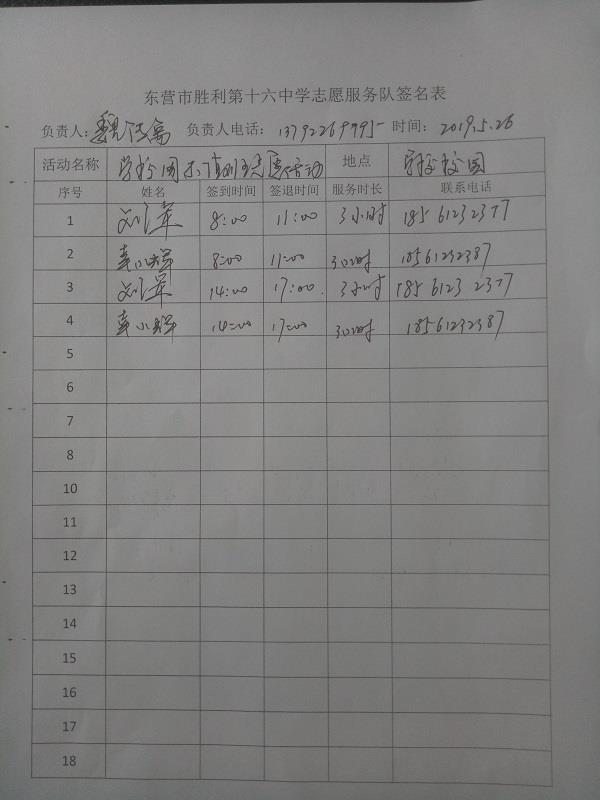 东营市胜利第十六中学志愿服务队签名表
负责人: 负责人电话: 13792269995 时间: 2019.5.26
活动名称 学校园 活动 地点 学校校园
序号 姓名 签到时间 签退时间 服务时长 联系电话
1 8:00 11:00 3小时 18561232377
2 8:00 11:00 3小时 18561232387
3 14:00 17:00 3小时 18561232377
4 14:00 17:00 3小时 18561232387
5
6
7
8
10
11
12
13
14
15
16
17
18